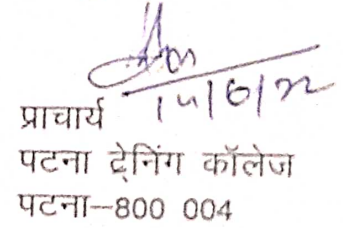 प्राचार्य
पटना ट्रेनिंग कॉलेज
पटना–800 004